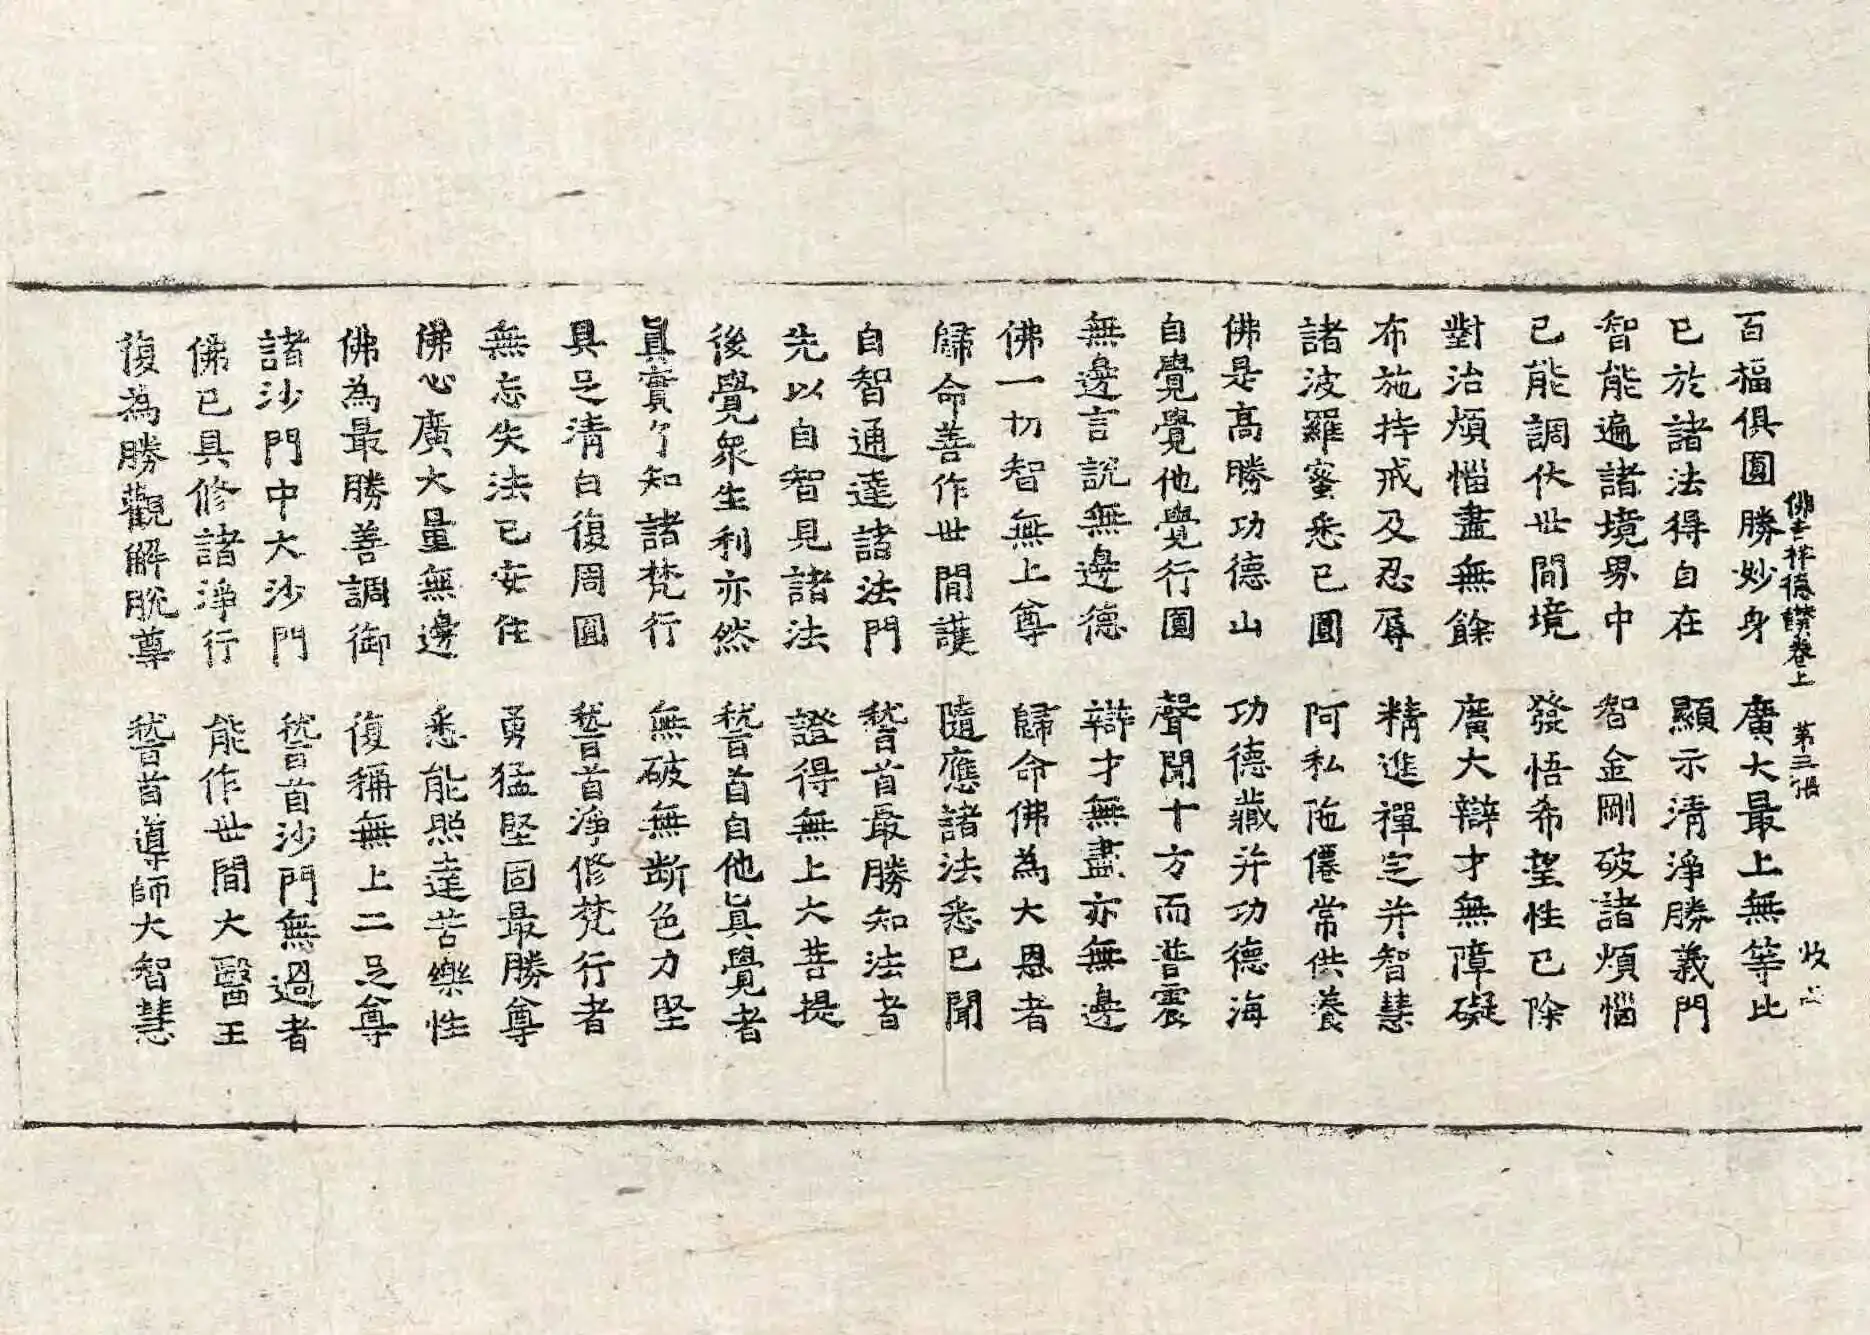 佛吉祥德讚卷上 第三張 收
百福俱圓勝妙身 廣大最上無等比
已於諸法得自在 顯示清淨勝義門
智能遍諸境界中 智金剛破諸煩惱
已能調伏世間境 發悟希望性已除
對治煩惱盡無餘 廣大辯才無障礙
布施持戒及忍辱 精進禪定并智慧
諸波羅蜜悉已圓 阿私陁僊常供養
佛是高勝功德山 功德藏并功德海
自覺覺他覺行圓 聲聞十方而普震
無邊言說無邊德 辯才無盡亦無邊
佛一切智無上尊 歸命佛為大恩者
歸命善作世間護 隨應諸法悉已聞
自智通達諸法門 稽首最勝知法者
先以自智見諸法 證得無上大菩提
後覺眾生利亦然 稽首自他眞覺者
眞實了知諸梵行 無破無斷色力堅
具足清白復周圓 稽首淨修梵行者
無忘失法已安住 勇猛堅固最勝尊
佛心廣大量無邊 悉能照達苦樂性
佛為最勝善調御 復稱無上二足尊
諸沙門中大沙門 稽首沙門無過者
佛已具修諸淨行 能作世間大醫王
復為勝觀解脫尊 稽首導師大智慧